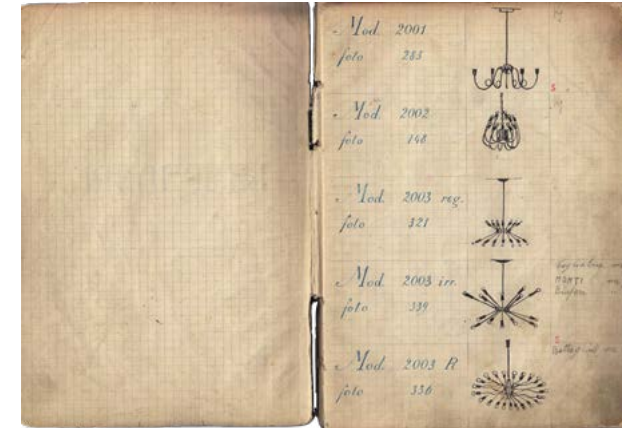 Mod. 2001
foto 285
S
Mod. 2002
foto 148
Mod. 2003 reg.
foto 321
Mod. 2003 irr.
foto 339
Mod. 2003 R
foto 336